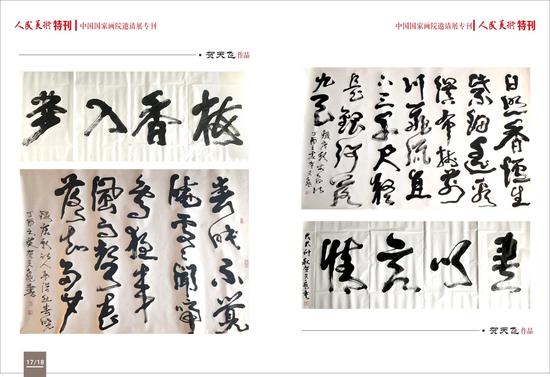 人民美术特刊 中国国家画院邀请展专刊
作品
梅香入梦
春眠不觉
晓处处闻啼
鸟夜来
风雨声花
落知多少
17/18
中国国家画院邀请展专刊 人民美术特刊
日照香炉生
紫烟遥看
瀑布挂前
川飞流直
下三千尺疑
是银河落
九天
书以言情
作品